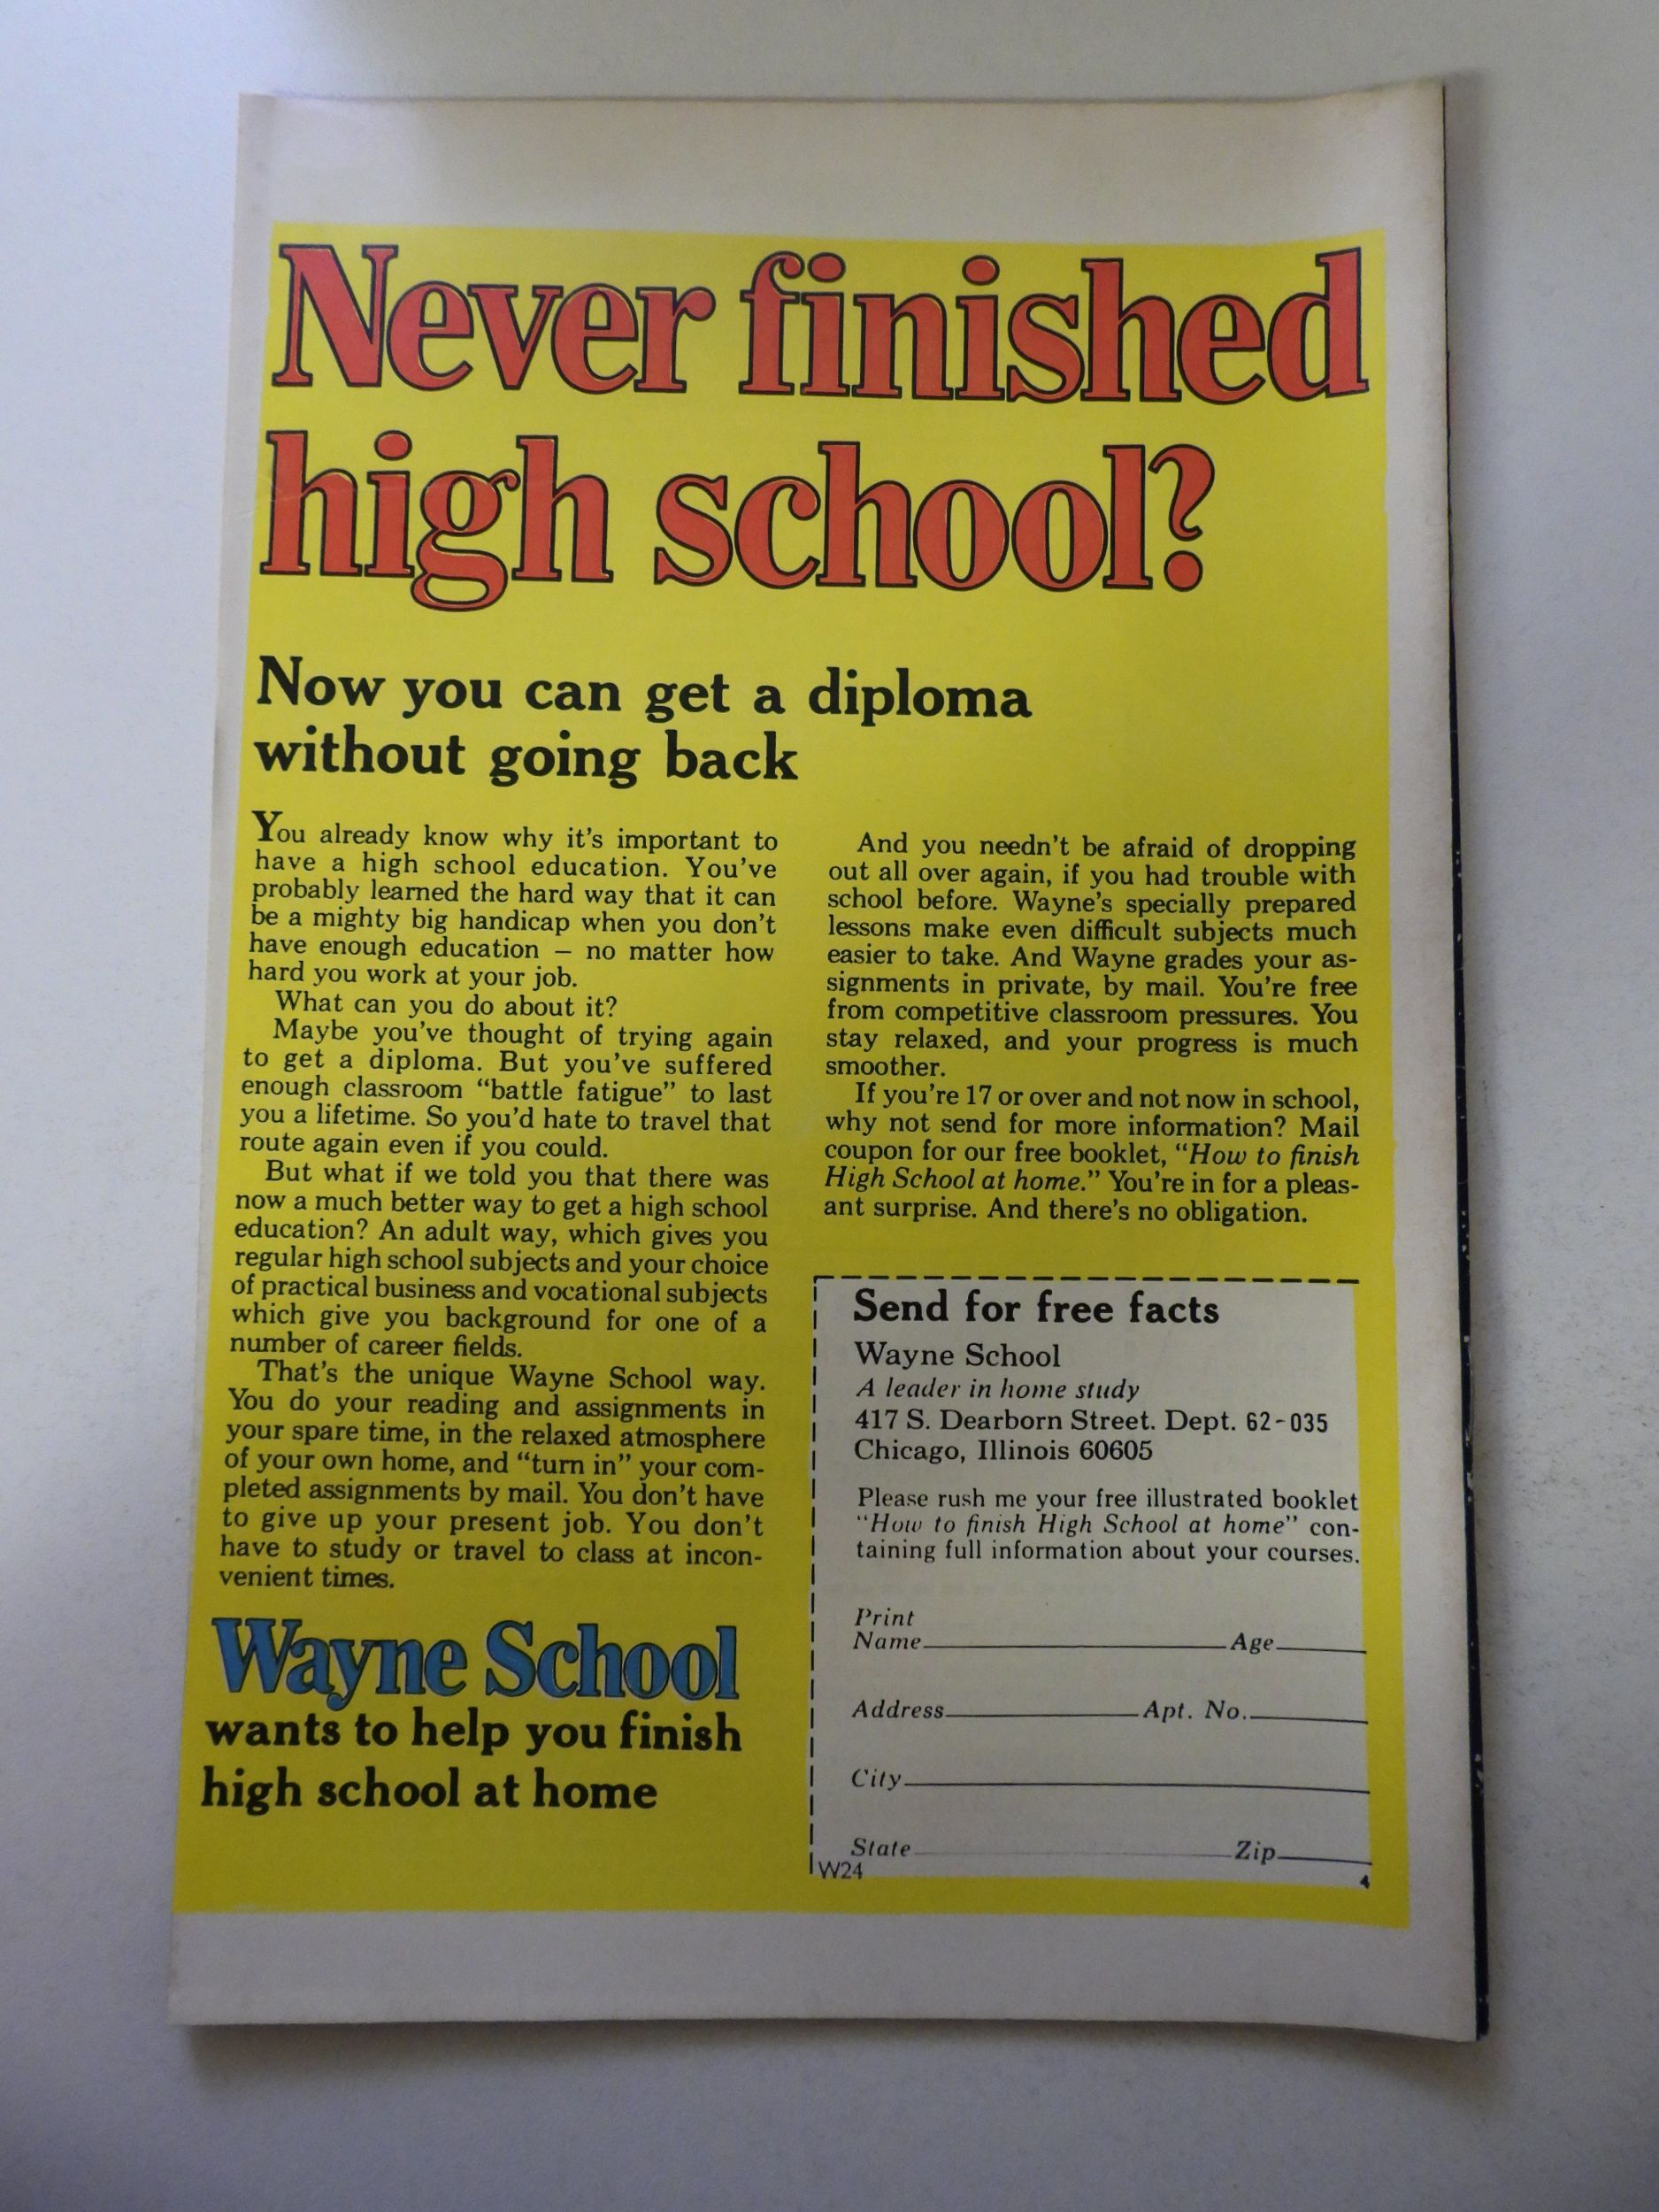 Never finished
high school?
Now you can get a diploma
without going back
You already know why it's important to
have a high school education. You've
probably learned the hard way that it can
be a mighty big handicap when you don't
have enough education – no matter how
hard you work at your job.
What can you do about it?
Maybe you've thought of trying again
to get a diploma. But you've suffered
enough classroom "battle fatigue" to last
you a lifetime. So you'd hate to travel that
route again even if you could.
But what if we told you that there was
now a much better way to get a high school
education? An adult way, which gives you
regular high school subjects and your choice
of practical business and vocational subjects
which give you background for one of a
number of career fields.
That's the unique Wayne School way.
You do your reading and assignments in
your spare time, in the relaxed atmosphere
of your own home, and "turn in" your com-
pleted assignments by mail. You don't have
to give up your present job. You don't
have to study or travel to class at incon-
venient times.
Wayne School
wants to help you finish
high school at home
And you needn't be afraid of dropping
out all over again, if you had trouble with
school before. Wayne's specially prepared
lessons make even difficult subjects much
easier to take. And Wayne grades your as-
signments in private, by mail. You're free
from competitive classroom pressures. You
stay relaxed, and your progress is much
smoother.
If you're 17 or over and not now in school,
why not send for more information? Mail
coupon for our free booklet, "How to finish
High School at home." You're in for a pleas-
ant surprise. And there's no obligation.
Send for free facts
Wayne School
A leader in home study
417 S. Dearborn Street. Dept. 62-035
Chicago, Illinois 60605
Please rush me your free illustrated booklet
"How to finish High School at home" con-
taining full information about your courses.
Print
Name Age
Address Apt. No.
City
State Zip
W24 4